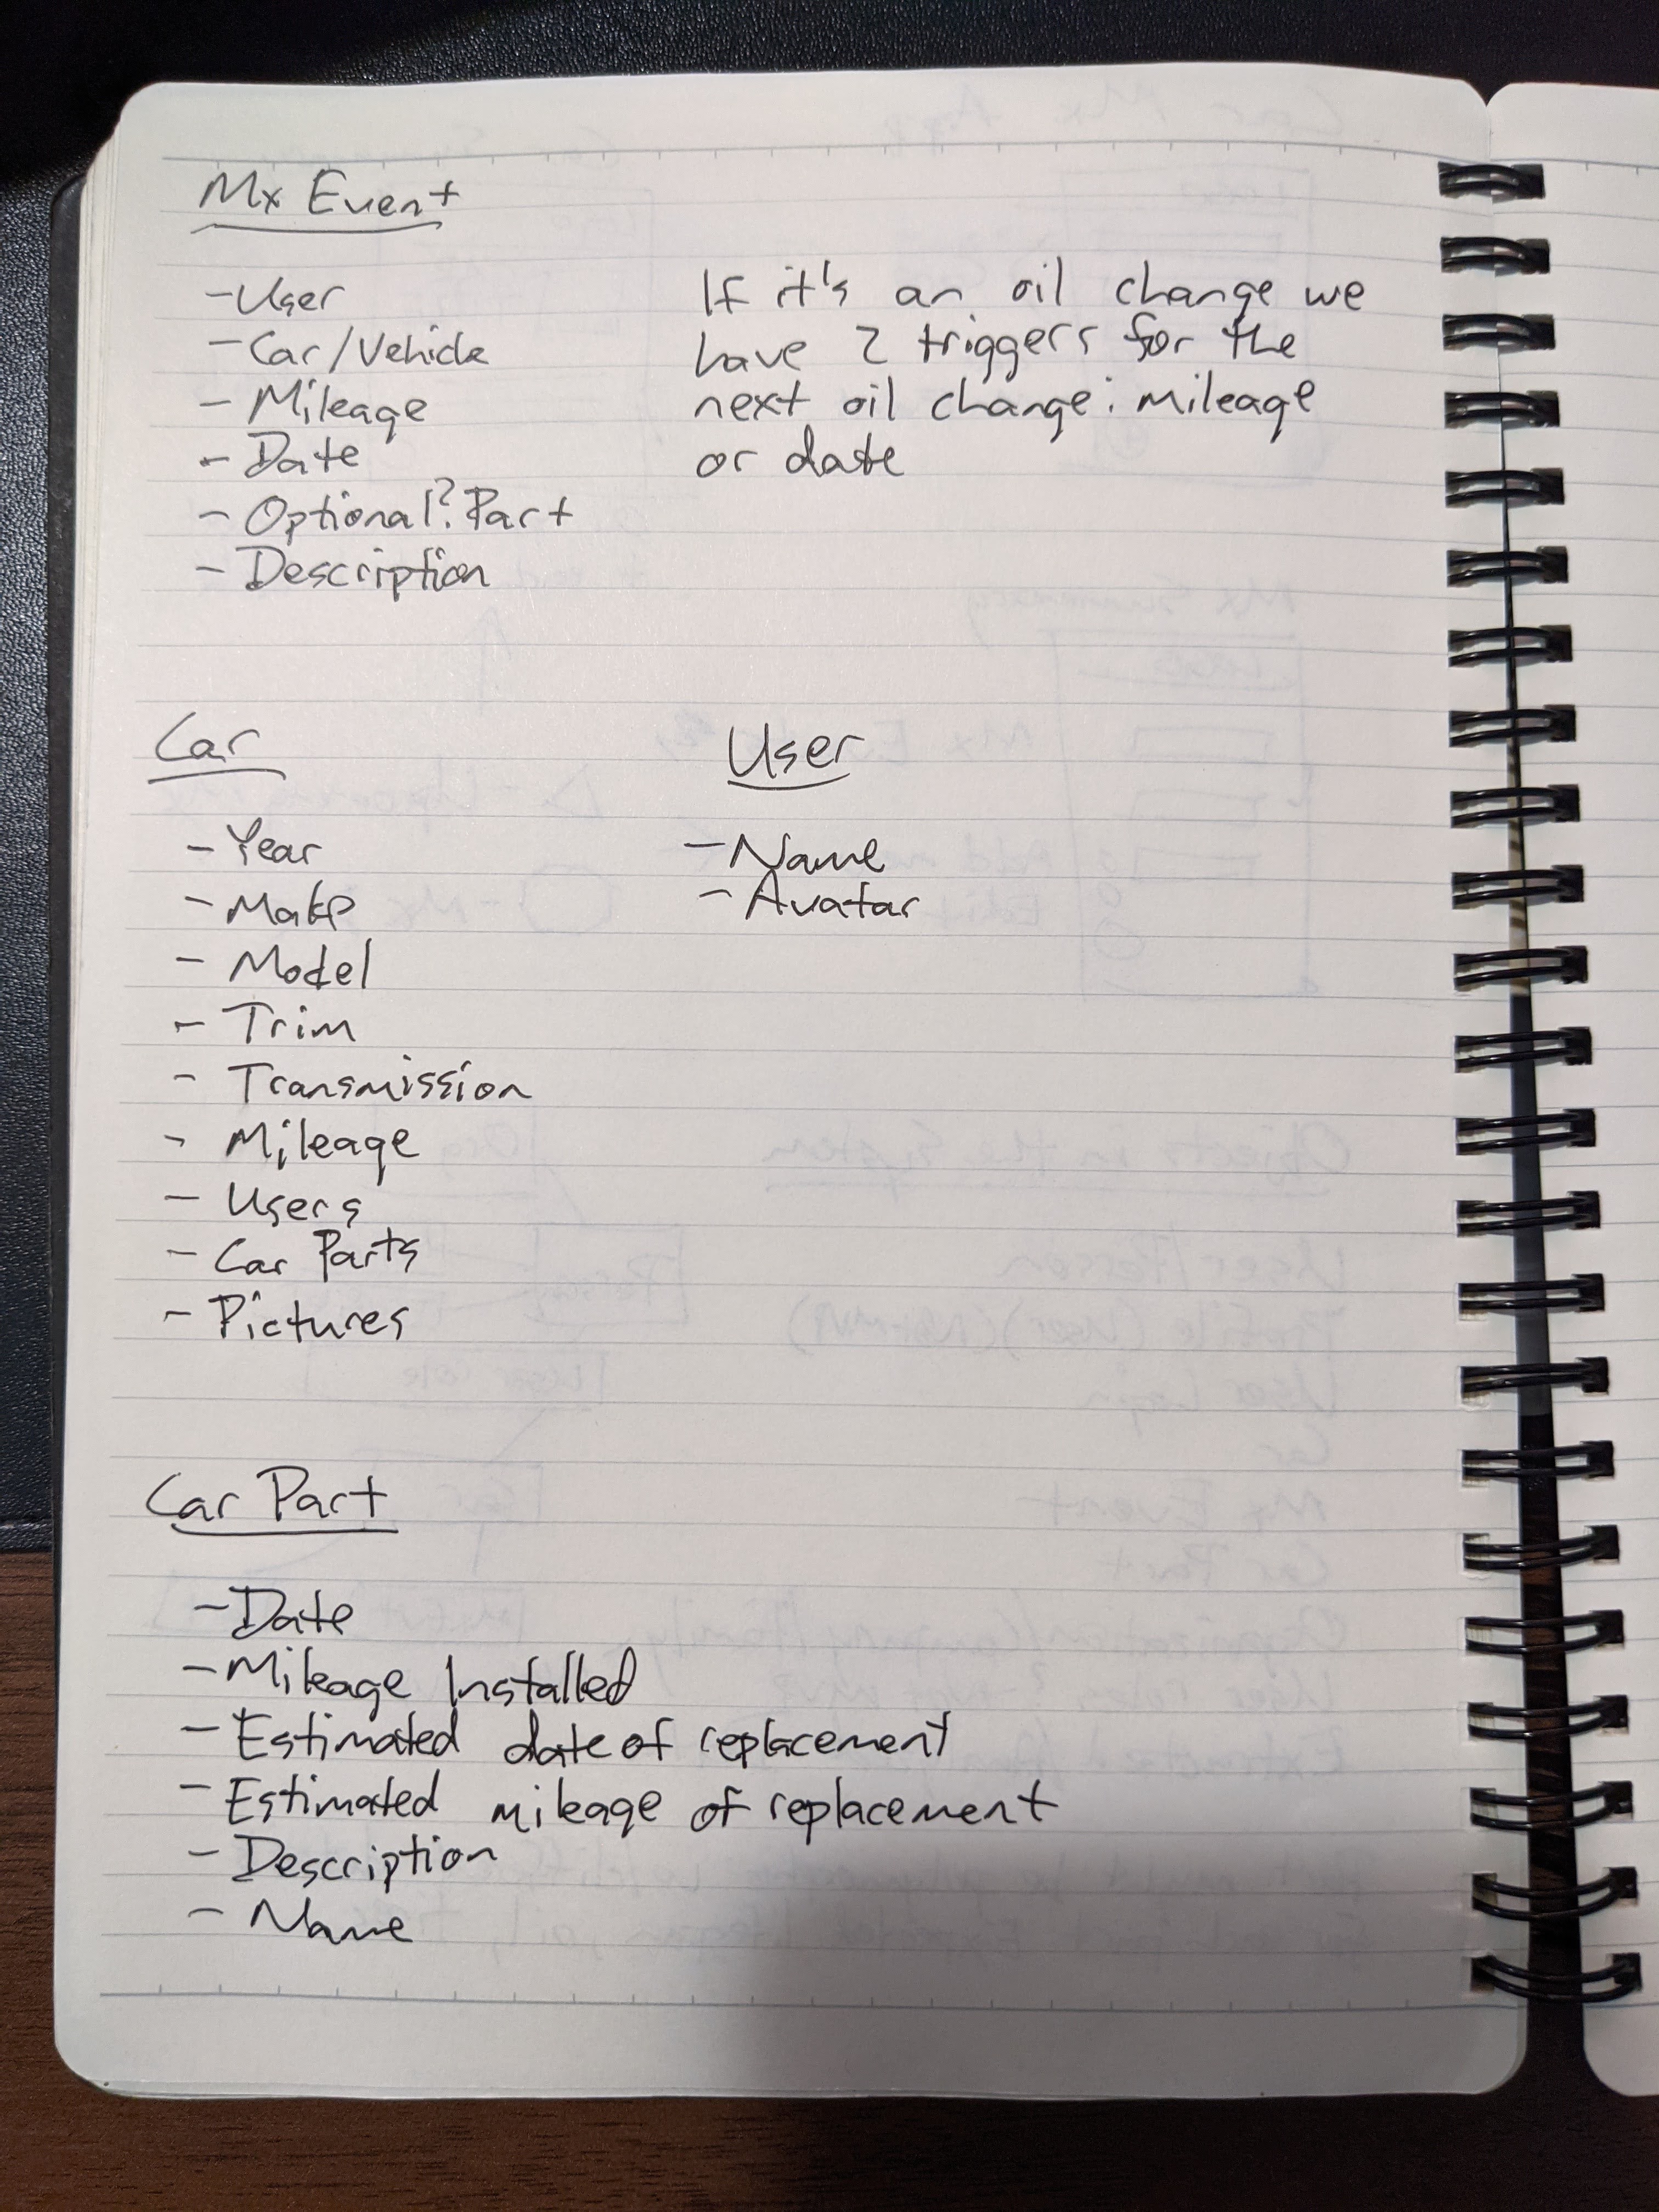 Mx Event
- User
- Car/Vehicle
- Mileage
- Date
- Optional? Part
- Description
If it's an oil change we
have 2 triggers for the
next oil change: mileage
or date
Car
- Year
- Make
- Model
- Trim
- Transmission
- Mileage
- Users
- Car Parts
- Pictures
User
- Name
- Avatar
Car Part
- Date
- Mileage Installed
- Estimated date of replacement
- Estimated mileage of replacement
- Description
- Name